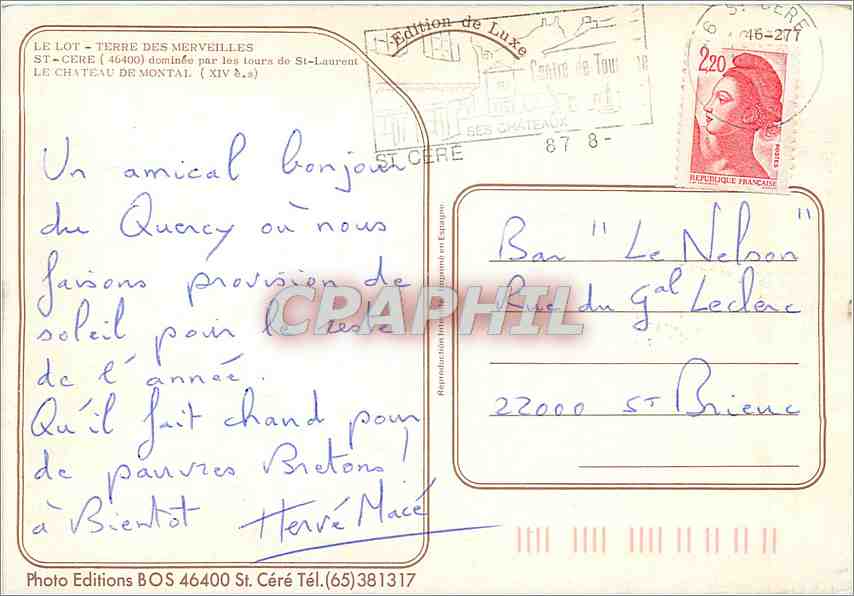 LE LOT - TERRE DES MERVEILLES
ST-CERE (46400) dominée par les tours de St-Laurent
LE CHATEAU DE MONTAL (XIV è.s)
Edition de Luxe
Centre de Tourisme
SES CHATEAUX
ST CERE
87 8-
ST CERE
46-277
2,20
POSTES
REPUBLIQUE FRANÇAISE
Un amical bonjour
du Quercy où nous
faisons provision de
soleil pour le reste
de l'année.
Qu'il fait chaud pour
de pauvres Bretons!
à Bientot Hervé Macé
Bar "Le Nelson"
Rue du Gal Leclerc
22000 ST Brieuc
CPAPHIL
Photo Editions BOS 46400 St. Céré Tél.(65)381317